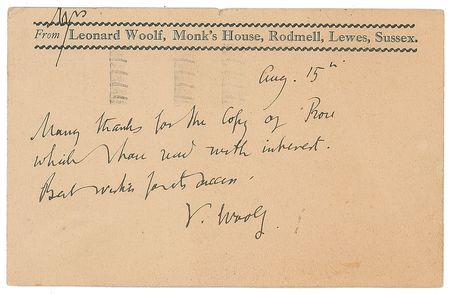 Mrs
From Leonard Woolf, Monk's House, Rodmell, Lewes, Sussex.
Aug. 15th
Many thanks for the copy of Prose
which I have read with interest.
Best wishes for its success.
V. Woolf.